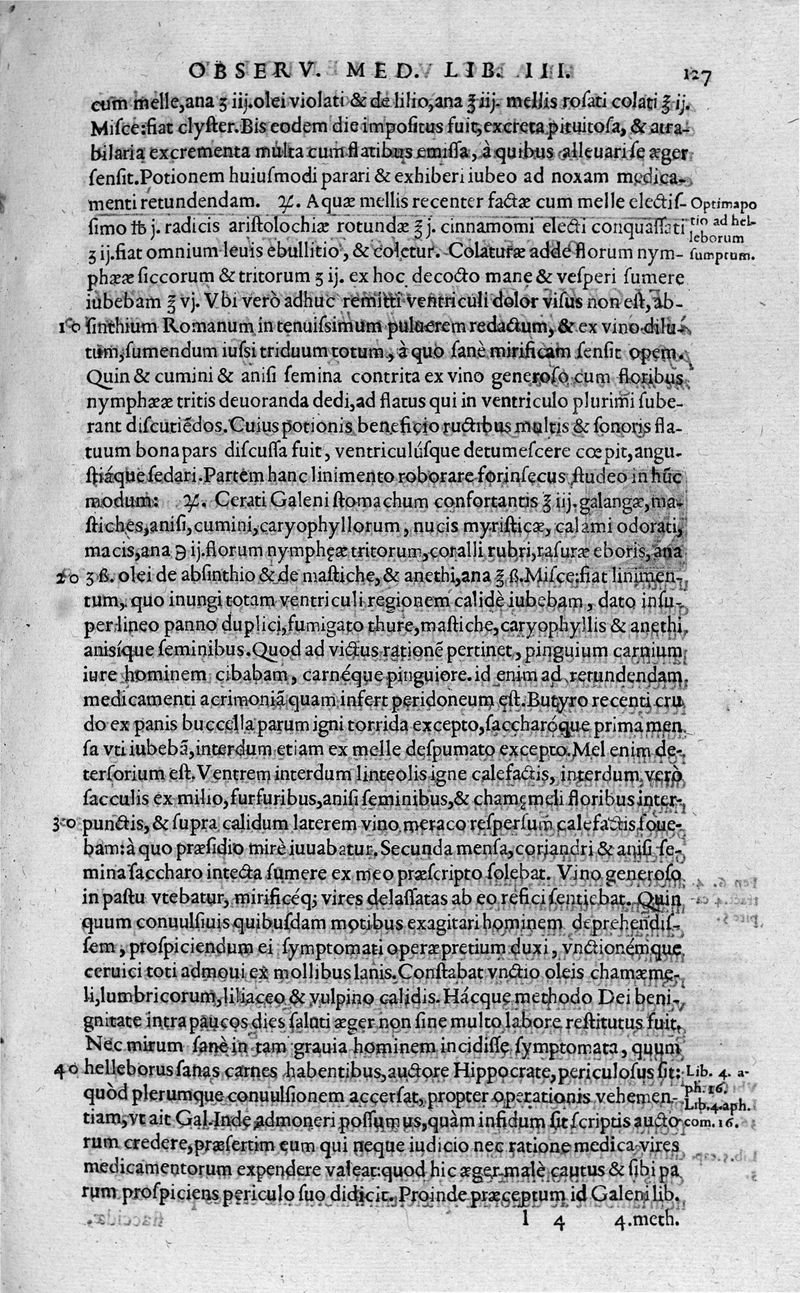 OBSERV. MED. LIB. III. 127
cum melle,ana ʒ iij.olei violati & de lilio,ana ℥ iij. mellis rosati colati ℥ ij.
Misce:fiat clyster.Bis eodem die impositus fuit,excreta pituitosa, & atra-
bilaria excrementa multa cum flatibus emissa, à quibus alleuari se æger
sensit.Potionem huiusmodi parari & exhiberi iubeo ad noxam medica-
menti retundendam. ℞. Aquæ mellis recenter factæ cum melle electis-
simo ℔ j. radicis aristolochiæ rotundæ ℥ j. cinnamomi electi conquassati
ʒ ij.fiat omnium leuis ebullitio, & coletur. Colaturæ adde florum nym-
Optima po
tio ad hel-
leborum
sumptum.
phææ siccorum & tritorum ʒ ij. ex hoc decocto mane & vesperi sumere
iubebam ℥ vj. Vbi verò adhuc remitti ventriculi dolor visus non est, ab-
10 sinthium Romanum in tenuissimum puluerem redactum, & ex vino dilu-
tum,sumendum iussi triduum totum, à quo sanè mirificam sensit opem.
Quin & cumini & anisi semina contrita ex vino generoso cum floribus
nymphææ tritis deuoranda dedi,ad flatus qui in ventriculo plurimi sube-
rant discutiēdos.Cuius potionis beneficio ructibus multis & sonoris fla-
tuum bona pars discussa fuit, ventriculúsque detumescere cœpit,angu-
stiáque sedari.Partem hanc linimento roborare forinsecus studeo in hūc
modum: ℞. Cerati Galeni stomachum confortantis ℥ iij.galangæ,ma-
stiches,anisi,cumini,caryophyllorum, nucis myristicæ, calami odorati,
macis,ana ℈ ij.florum nymphęæ tritorum,coralli rubri,rasuræ eboris,ana
20 ʒ ß. olei de absinthio & de mastiche,& anethi,ana ℥ ß.Misce:fiat linimen-
tum, quo inungi totam ventriculi regionem calidè iubebam, dato insu-
per lineo panno duplici,fumigato thure,mastiche,caryophyllis & anethi
anisíque seminibus.Quod ad victus rationē pertinet, pinguium carnium
iure hominem cibabam, carnéque pinguiore. id enim ad retundendam
medicamenti acrimoniā quam infert peridoneum est.Butyro recenti cru
do ex panis buccella parum igni torrida excepto,saccharóque prima men
sa vti iubebā,interdum etiam ex melle despumato excepto.Mel enim de-
tersorium est.Ventrem interdum linteolis igne calefactis, interdum vero
sacculis ex milio,furfuribus,anisi seminibus,& chamęmeli floribus inter-
30 punctis,& supra calidum laterem vino meraco respersum calefactis foue-
bam:à quo præsidio mirè iuuabatur. Secunda mensa,coriandri & anisi se-
mina saccharo intecta sumere ex meo præscripto solebat. Vino generoso
in pastu vtebatur, mirificéq; vires delassatas ab eo refici sentiebat. Quin
quum conuulsiuis quibusdam motibus exagitari hominem deprehendis-
sem, prospiciendum ei symptomati operæpretium duxi, vnctionémque
ceruici toti admoui ex mollibus lanis.Constabat vnctio oleis chamæme-
li,lumbricorum,liliaceo & vulpino calidis. Hácque methodo Dei beni-
gnitate intra paucos dies saluti æger non sine multo labore restitutus fuit.
Nec mirum sanè in tam grauia hominem incidisse symptomata, quum
40 helleborus sanas carnes habentibus,auctore Hippocrate,periculosus sit:
quòd plerumque conuulsionem accersat, propter operationis vehemen-
tiam,vt ait Gal.Inde admoneri possumus,quàm infidum sit scriptis aucto-
Lib. 4. a-
ph. 16.
Lib.4.aph.
com. 16.
rum credere,præsertim eum qui neque iudicio nec ratione medica vires
medicamentorum expendere valeat:quod hic æger malè cautus & sibi pa
rum prospiciens periculo suo didicit. Proinde præceptum id Galeni lib.
l 4 4.meth.